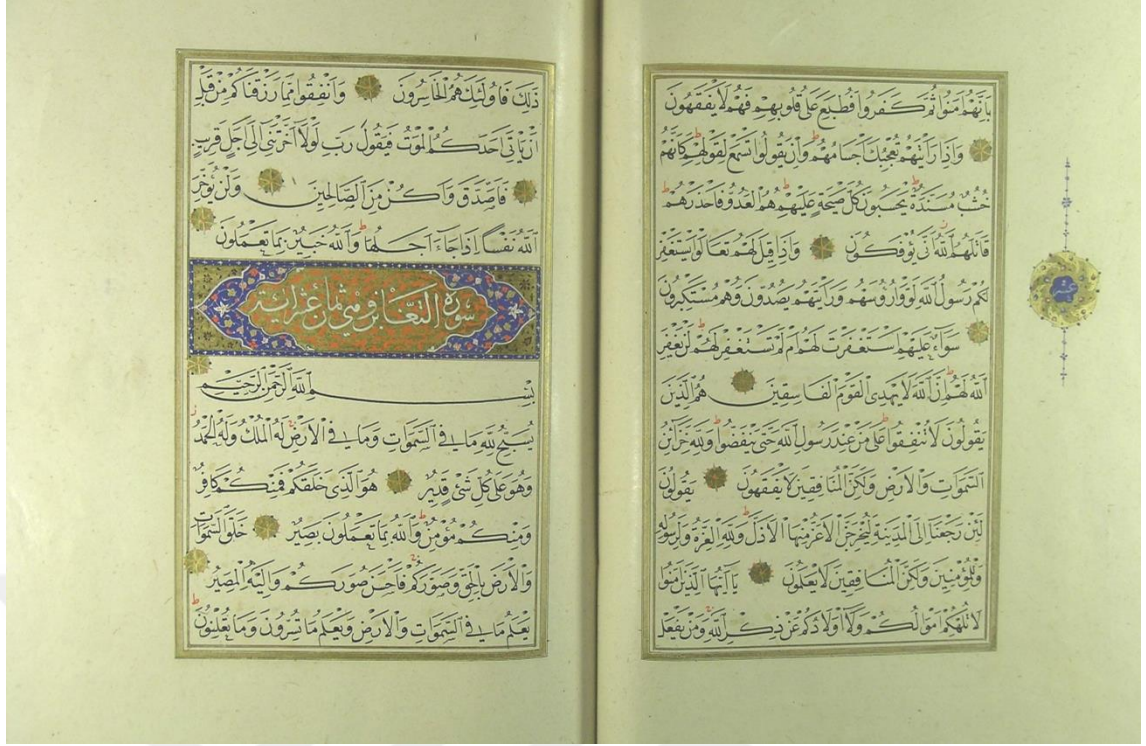 بِاَنَّهُمْ اٰمَنُوا ثُمَّ كَفَرُوا فَطُبِعَ عَلٰى قُلُوبِهِمْ فَهُمْ لَا يَفْقَهُونَ
وَاِذَا رَاَيْتَهُمْ تُعْجِبُكَ اَجْسَامُهُمْ وَاِنْ يَقُولُوا تَسْمَعْ لِقَوْلِهِمْ كَاَنَّهُمْ
خُشُبٌ مُسَنَّدَةٌ يَحْسَبُونَ كُلَّ صَيْحَةٍ عَلَيْهِمْ هُمُ الْعَدُوُّ فَاحْذَرْهُمْ
قَاتَلَهُمُ اللّٰهُ اَنّٰى يُؤْفَكُونَ وَاِذَا قِيلَ لَهُمْ تَعَالَوْا يَسْتَغْفِرْ
لَكُمْ رَسُولُ اللّٰهِ لَوَّوْا رُؤُسَهُمْ وَرَاَيْتَهُمْ يَصُدُّونَ وَهُمْ مُسْتَكْبِرُونَ
سَوَاءٌ عَلَيْهِمْ اَسْتَغْفَرْتَ لَهُمْ اَمْ لَمْ تَسْتَغْفِرْ لَهُمْ لَنْ يَغْفِرَ
اللّٰهُ لَهُمْ اِنَّ اللّٰهَ لَا يَهْدِى الْقَوْمَ الْفَاسِقِينَ هُمُ الَّذِينَ
يَقُولُونَ لَا تُنْفِقُوا عَلٰى مَنْ عِنْدَ رَسُولِ اللّٰهِ حَتّٰى يَنْفَضُّوا وَلِلّٰهِ خَزَائِنُ
السَّمٰوَاتِ وَالْاَرْضِ وَلٰكِنَّ الْمُنَافِقِينَ لَا يَفْقَهُونَ يَقُولُونَ
لَئِنْ رَجَعْنَا اِلَى الْمَدِينَةِ لَيُخْرِجَنَّ الْاَعَزُّ مِنْهَا الْاَذَلَّ وَلِلّٰهِ الْعِزَّةُ وَلِرَسُولِهِ
وَلِلْمُؤْمِنِينَ وَلٰكِنَّ الْمُنَافِقِينَ لَا يَعْلَمُونَ يَا اَيُّهَا الَّذِينَ اٰمَنُوا
لَا تُلْهِكُمْ اَمْوَالُكُمْ وَلَا اَوْلَادُكُمْ عَنْ ذِكْرِ اللّٰهِ وَمَنْ يَفْعَلْ
ذٰلِكَ فَاُولٰئِكَ هُمُ الْخَاسِرُونَ وَاَنْفِقُوا مِمَّا رَزَقْنَاكُمْ مِنْ قَبْلِ
اَنْ يَاْتِىَ اَحَدَكُمُ الْمَوْتُ فَيَقُولَ رَبِّ لَوْلَا اَخَّرْتَنِى اِلٰى اَجَلٍ قَرِيبٍ
فَاَصَّدَّقَ وَاَكُنْ مِنَ الصَّالِحِينَ وَلَنْ يُؤَخِّرَ
اللّٰهُ نَفْسًا اِذَا جَاءَ اَجَلُهَا وَاللّٰهُ خَبِيرٌ بِمَا تَعْمَلُونَ
سورة التغابن وهى ثمان عشر ايات
بِسْمِ اللّٰهِ الرَّحْمٰنِ الرَّحِيمِ
يُسَبِّحُ لِلّٰهِ مَا فِى السَّمٰوَاتِ وَمَا فِى الْاَرْضِ لَهُ الْمُلْكُ وَلَهُ الْحَمْدُ
وَهُوَ عَلٰى كُلِّ شَىْءٍ قَدِيرٌ هُوَ الَّذِى خَلَقَكُمْ فَمِنْكُمْ كَافِرٌ
وَمِنْكُمْ مُؤْمِنٌ وَاللّٰهُ بِمَا تَعْمَلُونَ بَصِيرٌ خَلَقَ السَّمٰوَاتِ
وَالْاَرْضَ بِالْحَقِّ وَصَوَّرَكُمْ فَاَحْسَنَ صُوَرَكُمْ وَاِلَيْهِ الْمَصِيرُ
يَعْلَمُ مَا فِى السَّمٰوَاتِ وَالْاَرْضِ وَيَعْلَمُ مَا تُسِرُّونَ وَمَا تُعْلِنُونَ